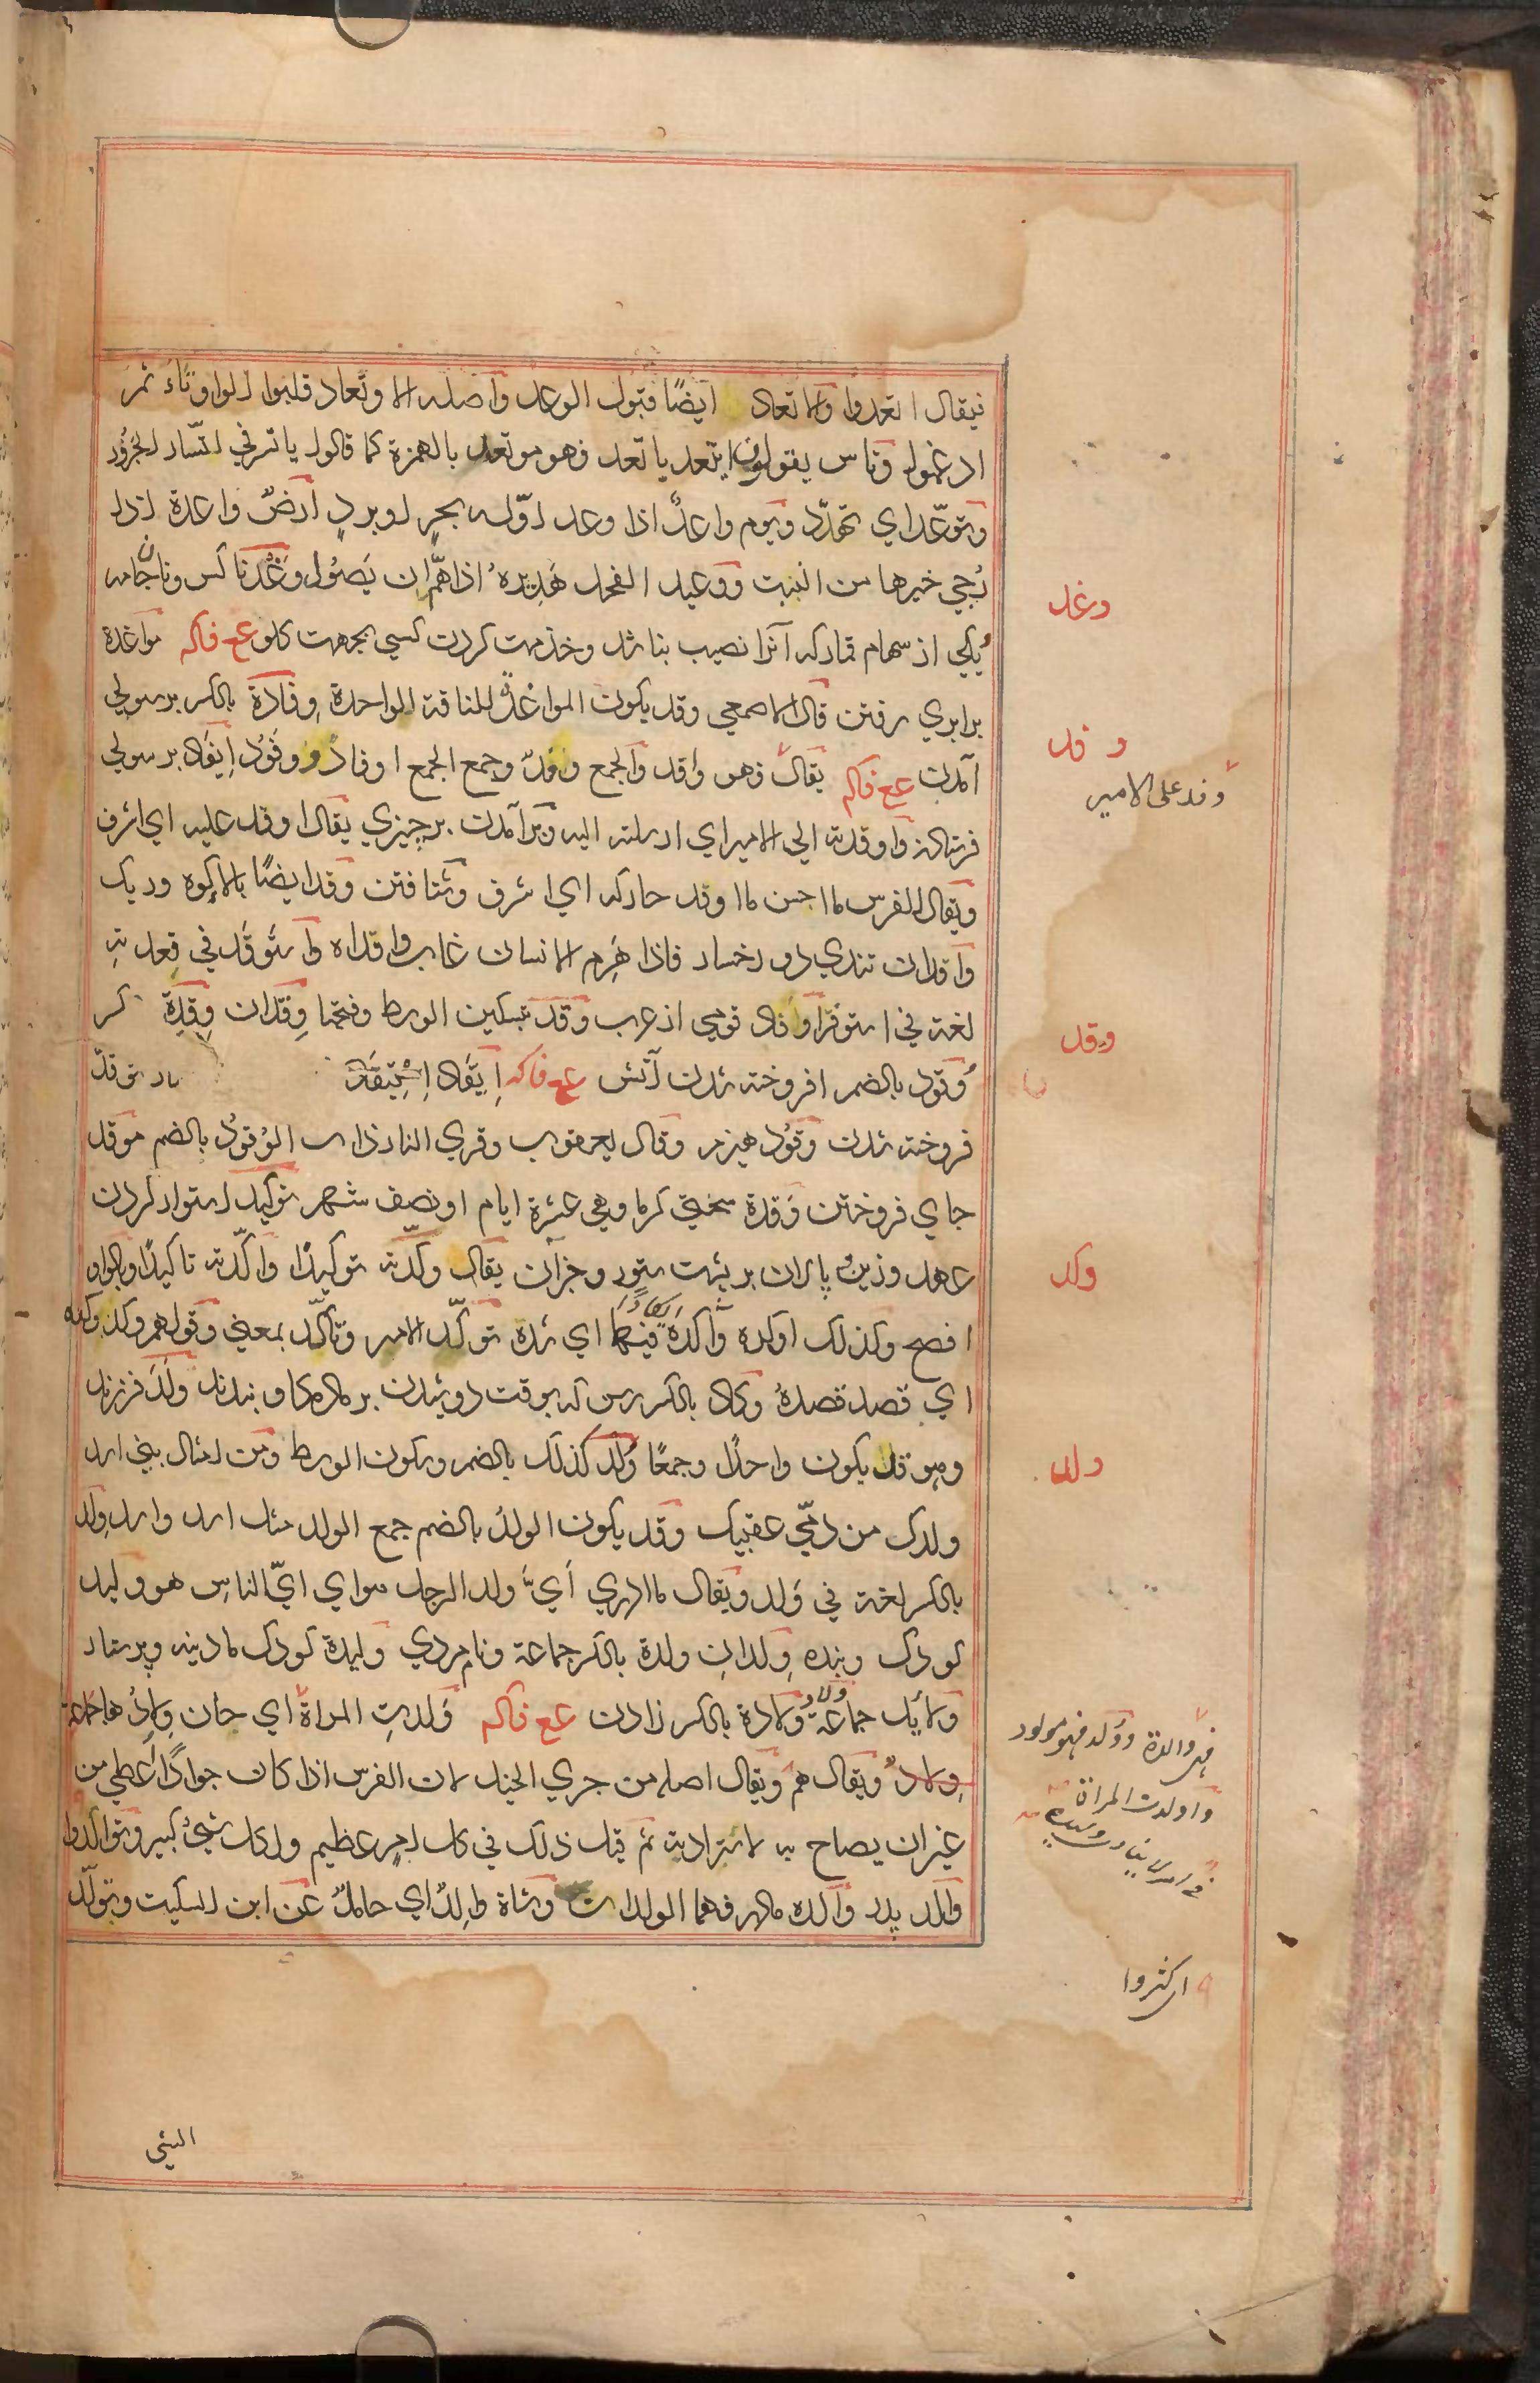 فيقال اتعدوا والاتعاد ايضًا قبول الوعد واصله الاوتعاد قلبوا الواو تاءً ثم
ادغموا وناس يقولون ايتعد ياتعد فهو موتعد بالهمزة كما قالوا ياتسر في اتسار الجزور
وتوعّد اي تهدّد ويوم واعدٌ اذا وعد اوّله بحرٍ او بردٍ ارضٌ واعدة اذا
رُجي خيرها من النبت ووعيد الفحل هَديره اذا همّ ان يَصئول وَغْدٌ ناكس وناجامه
يكي از سهام قمار كه آنرا نصيب نباشد و خذمت كردن كسي بجهت كلو ع ع فاكه مواغدة
برابري رفتن قال الاصمعي وقد يكون المواغدة للناقة الواحدة وِفادة بالكسر برسولي
آمدن ع ع فاكه يقال فهو وافد والجمع وفدٌ وجمع الجمع اوفاد ووفودٌ اِيفاد برسولي
فرستادن واوفدته الي الامير اي ارسلته اليه وبرآمدن بر چيزي يقال اوفد عليه اي اشرف
ويقال للفرس ما احسن ما اوفد حاركه اي اشرف وشتافتن وفد ايضًا بالاكوه وريك
وافدان تندي دو رخسار فاذا هَرِم الانسان غاب وافداه واستوفد في قعدته
لغة في استوفز اوفاد قومي از عرب وقد بتسكين الوسط وفتحها وقدان وِقدة كر
وُقود بالضم افروخته شدن آتش ع ع فاكه اِيقاد اِستيقاد توقد
فروخته شدن وَقود هيزم وقال يعقوب وقري النار ذات الوُقود بالضم موقد
جاي فروختن وَقدة سختي كرما وهي عشرة ايام او نصف شهر توكيد استوار كردن
عهد و زين پالان بر پشت ستور و جز آن يقال وكّدته توكيدًا واكّدته تاكيدًا وبالواو
افصح وكذلك اوكده وآكده ايكادًا فيهما اي شده توكّد الامر وتاكّد بمعني وقولهم وكد وكده
اي قصد قصده وِكاد بالكسر رسن كه بوقت دوشيدن بر كاو بندند وَلَد فرزند
وهو قد يكون واحدًا وجمعًا وُلد كذلك بالضم وسكون الوسط ومن امثال بني اسد
ولدك من دمّي عقبيك وقد يكون الولد بالضم جمع الولد مثل اسد واسد وِلد
بالكسر لغة في وَلد ويقال ما ادري اَيّ ولد الرجل هو اي ايّ الناس هو وليد
كودك وبنده وِلدان ولدة بالكسر جماعة ونام مردي وليدة كودك مادينه و پرستار
ولائد جماعة ولاد وولادة بالكسر زادن ع ع فاكه وَلدتِ المراة اي حان وِلادُها جماعة
وِلادٌ ويقال هم ويقال اصله من جري الخيل لان الفرس اذا كان جوادًا اُعطي من
غير ان يصاح به لاستزادته ثم قيل ذلك في كل امرٍ عظيم ولكل شيءٍ كبير وتوالدوا
والد پدر والده مادر فهما الوالدان وشاة والدٌ اي حاملٌ عن ابن السكيت وتولّد
وغد
وفد
وفد علي الامير
وقد
وكد
ولد
فهي والدة ووُلد فهو مولود
واولدت المراة
اي كثروا